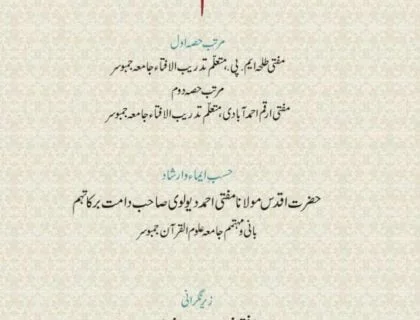 مرتب حصہ اول
مفتی طلحہ ایم. پی. متعلّم تدریب الافتاء جامعہ جمبوسر
مرتب حصہ دوم
مفتی ارقم احمدآبادی، متعلّم تدریب الافتاء جامعہ جمبوسر
حسب ایماء وارشاد
حضرت اقدس مولانا مفتی احمد دیولوی صاحب دامت برکاتہم
بانی و مہتمم جامعہ علوم القرآن جمبوسر
زیر نگرانی